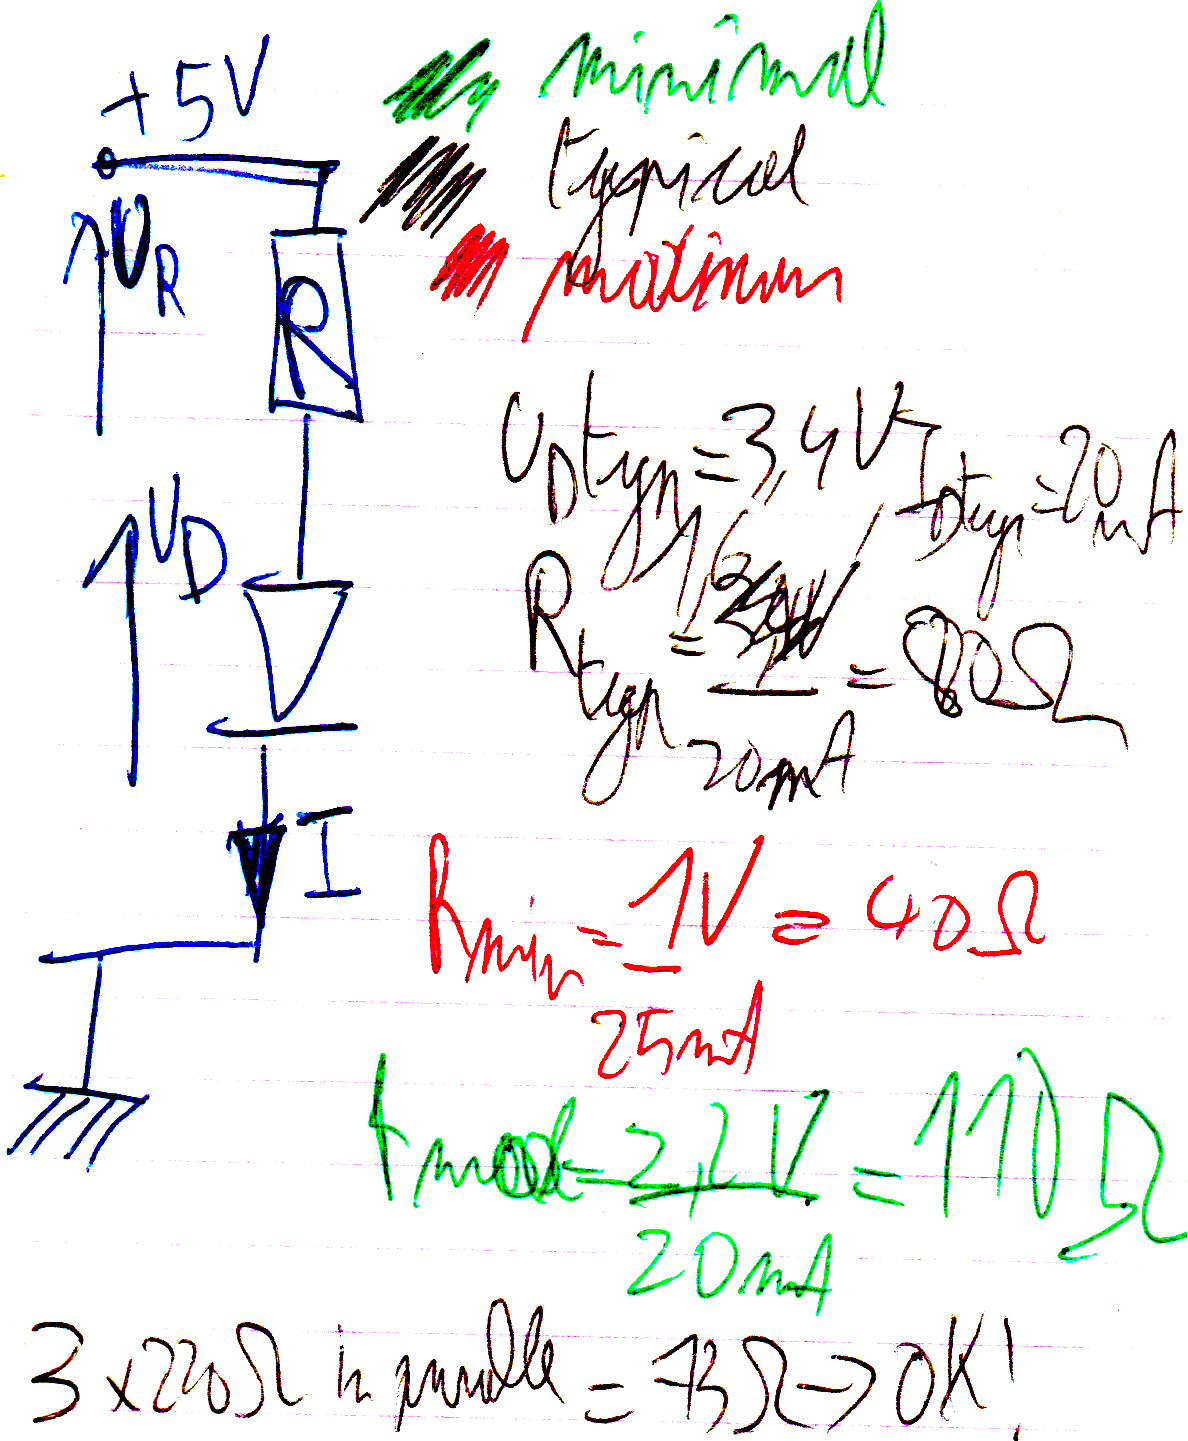 +5V
minimal
typical
maximum
U_R
R
U_D typ = 3,4V I_D typ = 20mA
U_D
R_typ = 1,6V / 20mA = 80Ω
I
R_min = 1V / 25mA = 40Ω
R_max = 2,2V / 20mA = 110Ω
3x220Ω in parallele = 73Ω → OK!